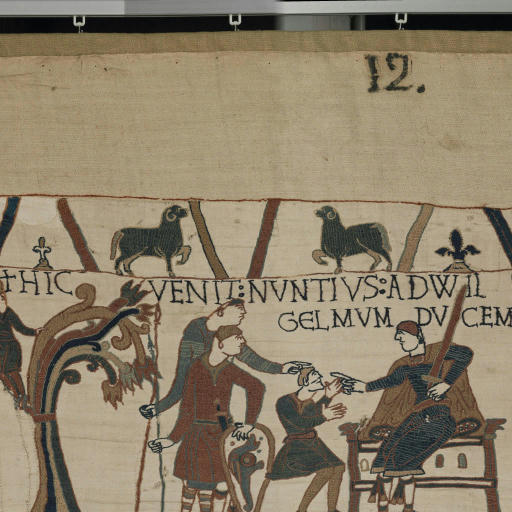 12.
THIC VENIT:NVNTIVS:ADWIL
GELMVM DVCEM